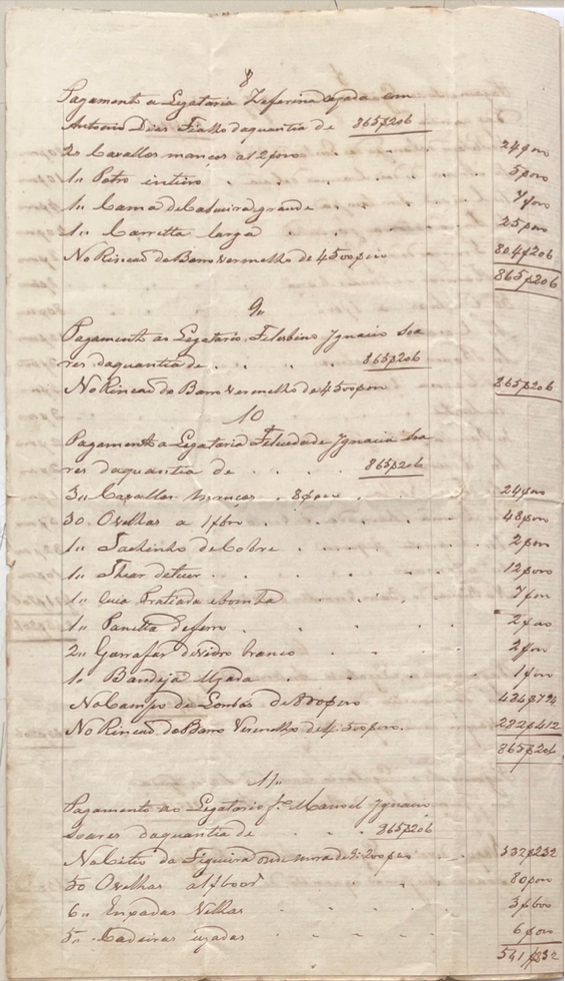 8
Pagamento a Legataria Zeferina cazada com
Antonio Dias Fialho daquantia de 865$206
2,, Cavallos mancos a 12$000 . . . 24$000
1,, Potro inteiro . . . . 5$000
1,, Cama de Cabiceira grande . . . 7$000
1,, Carretta larga . . . 25$000
No Rincaõ do Barro Vermelho de 4500$000 804$206
865$206
9,,
Pagamento ao Legatario Felisbino Ignacio Soa
res daquantia de . . . 865$206
No Rincaõ do Barro Vermelho de 4500$000 865$206
10
Pagamento a Legataria Felicidade Ignacia Soa
res daquantia de . . . . 865$206
3,, Cavallos mancos . 8$000 . . 24$000
30 Ovelhas a 1$600 . . . 48$000
1,, Tachinho de Cobre . . . 2$000
1,, Thear de tecer . . . 12$000
1,, Cuia Pratiada e bomba . . 7$000
1,, Panella de ferro . . . 2$000
2,, Garrafas de Vidro branco . . 2$000
1,, Bandeja Uzada . . . 1$000
No Campo de de 800$000 434$794
No Rincaõ do Barro Vermelho de 4:500$000. 332$412
865$206
11,,
Pagamento ao Legatario Manoel Ignacio
Soares daquantia de . . . 865$206
No Citio da Figueira onde mora de 3:200$000 . . 332$232
50 Ovelhas a 1$600 . . . 80$000
6,, Enxadas Velhas . . . 3$600
5,, Cadeiras uzadas . . . 6$000
541$832